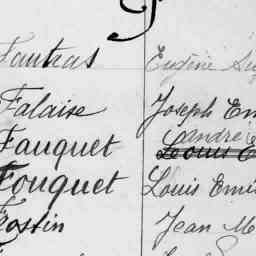 F
Fautras Eugène
Falaise Joseph Em
Fauquet André
Louis E
Fouquet Louis Emi
Fostin Jean M